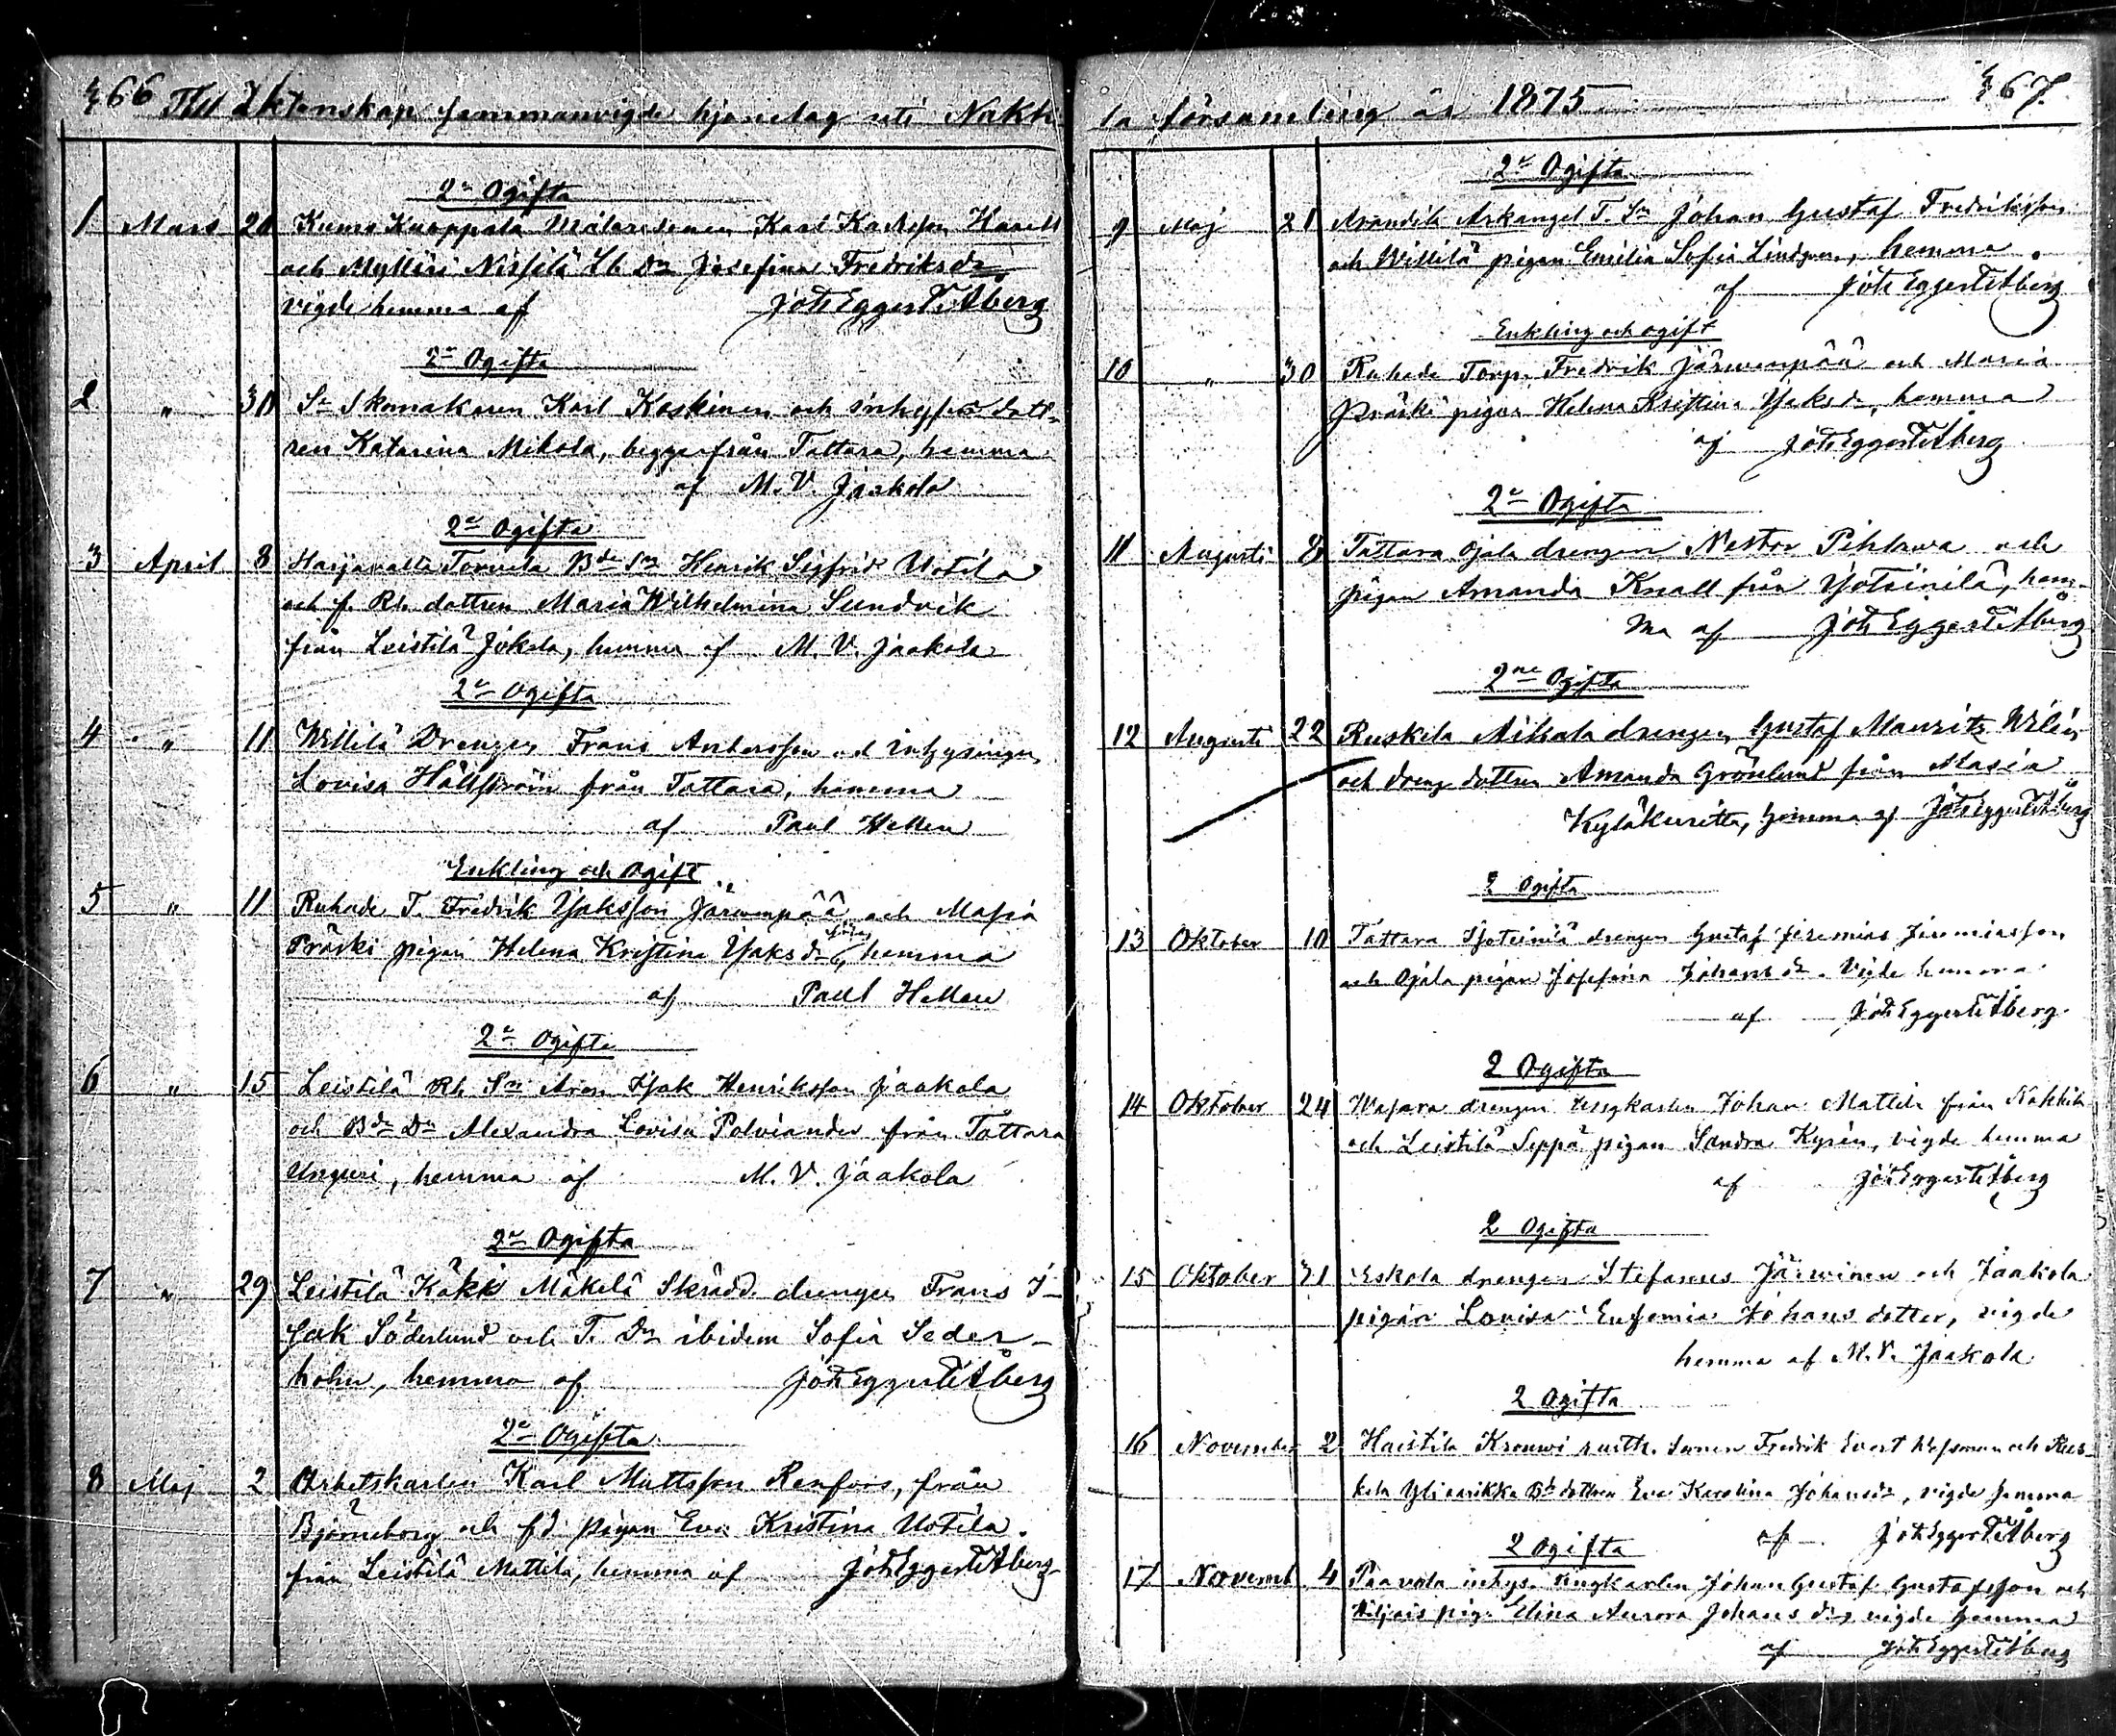 66 Till Äktenskap sammanvigde hjonelag uti Nakki
2ne Ogifta
1 Mars 20 Kumo Knaappala Målare sonen Karl Karlsson
och Mylläri Nissilä Lb Dn Josefina Fredriksdr
vigde hemma af Joh Eggert Titberg
2ne Ogifta
2 " 30 Sn Skomakaren Karl Koskinen och inhyses dott-
ren Katarina Mikola, begge från Tattara, hemma
af M. V. Jaakola
2ne Ogifta
3 April 8 Harjavalta Torvela Bde Sn Henrik Sigfrid Uotila
och f. Rh. dottren Maria Wilhelmina Sundvik
från Leistilä Jokela, hemma af M. V. Jaakola
2ne Ogifta
4 " 11 Willilä Drengen Frans Andersson och inhysingen
Lovisa Hällström från Tattara, hemma
af Paul Hellen
Enkling och Ogift
5 " 11 Ruhade T. Fredrik Isaksson Järvenpää och Masia
Präski pigan Helena Kristina Isaksdr, hemma
af Paul Hellen
2ne Ogifta
6 " 15 Leistilä Rh. Sn Aron Isak Henriksson Jaakola
och Bde Dn Alexandra Lovisa Polviander från Tattara
Unguri, hemma af M. V. Jaakola
2ne Ogifta
7 " 29 Leistilä Käkk Mäkelä Skrädd. drengen Frans I-
sak Söderlund och T. Dn ibidem Sofia Seder-
holm, hemma af Joh Eggert Titberg
2ne Ogifta
8 Maj 2 Arbetskarlen Karl Mattsson Renfors, från
Björneborg och fd pigan Eva Kristina Uotila
från Leistilä Mattila, hemma af Joh Eggert Titberg
la församling år 1875 67.
2ne Ogifta
9 Maj 21 Arkangel T. Sn Johan Gustaf Fredriksson
och Willilä pigan Emilia Sofia Lindgren, hemma
af Joh Eggert Titberg
Enkling och ogift
10 " 30 Ruhade Torp. Fredrik Järvenpää och Masia
Präski pigan Helena Kristina Isaksdr, hemma
af Joh Eggert Titberg
2ne Ogifta
11 Augusti 8 Tattara Ojala drengen Nestor Pihlava och
pigan Amanda Knall från Isoteinilä, hem-
ma af Joh Eggert Titberg
2ne Ogifta
12 Augusti 22 Ruskila Nikola drengen Gustaf Mauritz Wilén
och dreng dottren Amanda Grönlund från Masia
Kyläkuritta, hemma af Joh Eggert Titberg
2 Ogifta
13 Oktober 10 Tattara Isoteinilä drengen Gustaf Jeremias Jeremiasson
och Ojala pigan Josefina Johansdr. Vigde hemma
af Joh Eggert Titberg
2 Ogifta
14 Oktober 24 Wasara drengen Ungkarlen Johan Mattila från Nakkila
och Leistilä Seppä pigan Sandra Kyrén, vigde hemma
af Joh Eggert Titberg
2 Ogifta
15 Oktober 31 Eskola drengen Stefanus Järvinen och Jaakola
pigan Lovisa Eufemia Johansdotter, vigde
hemma af M. V. Jaakola
2 Ogifta
16 November 2 Haistila Krouwi rusth. sonen Fredrik Evert och Rus-
kila Yliaarikka Bde dottren Eva Karolina Johansdr, vigde hemma
af Joh Eggert Titberg
2 Ogifta
17 Novemb 4 Paavola inhys. Ungkarlen Johan Gustaf Gustafsson och
Viljais pig. Elina Aurora Johansdr, vigde hemma
af Joh Eggert Titberg